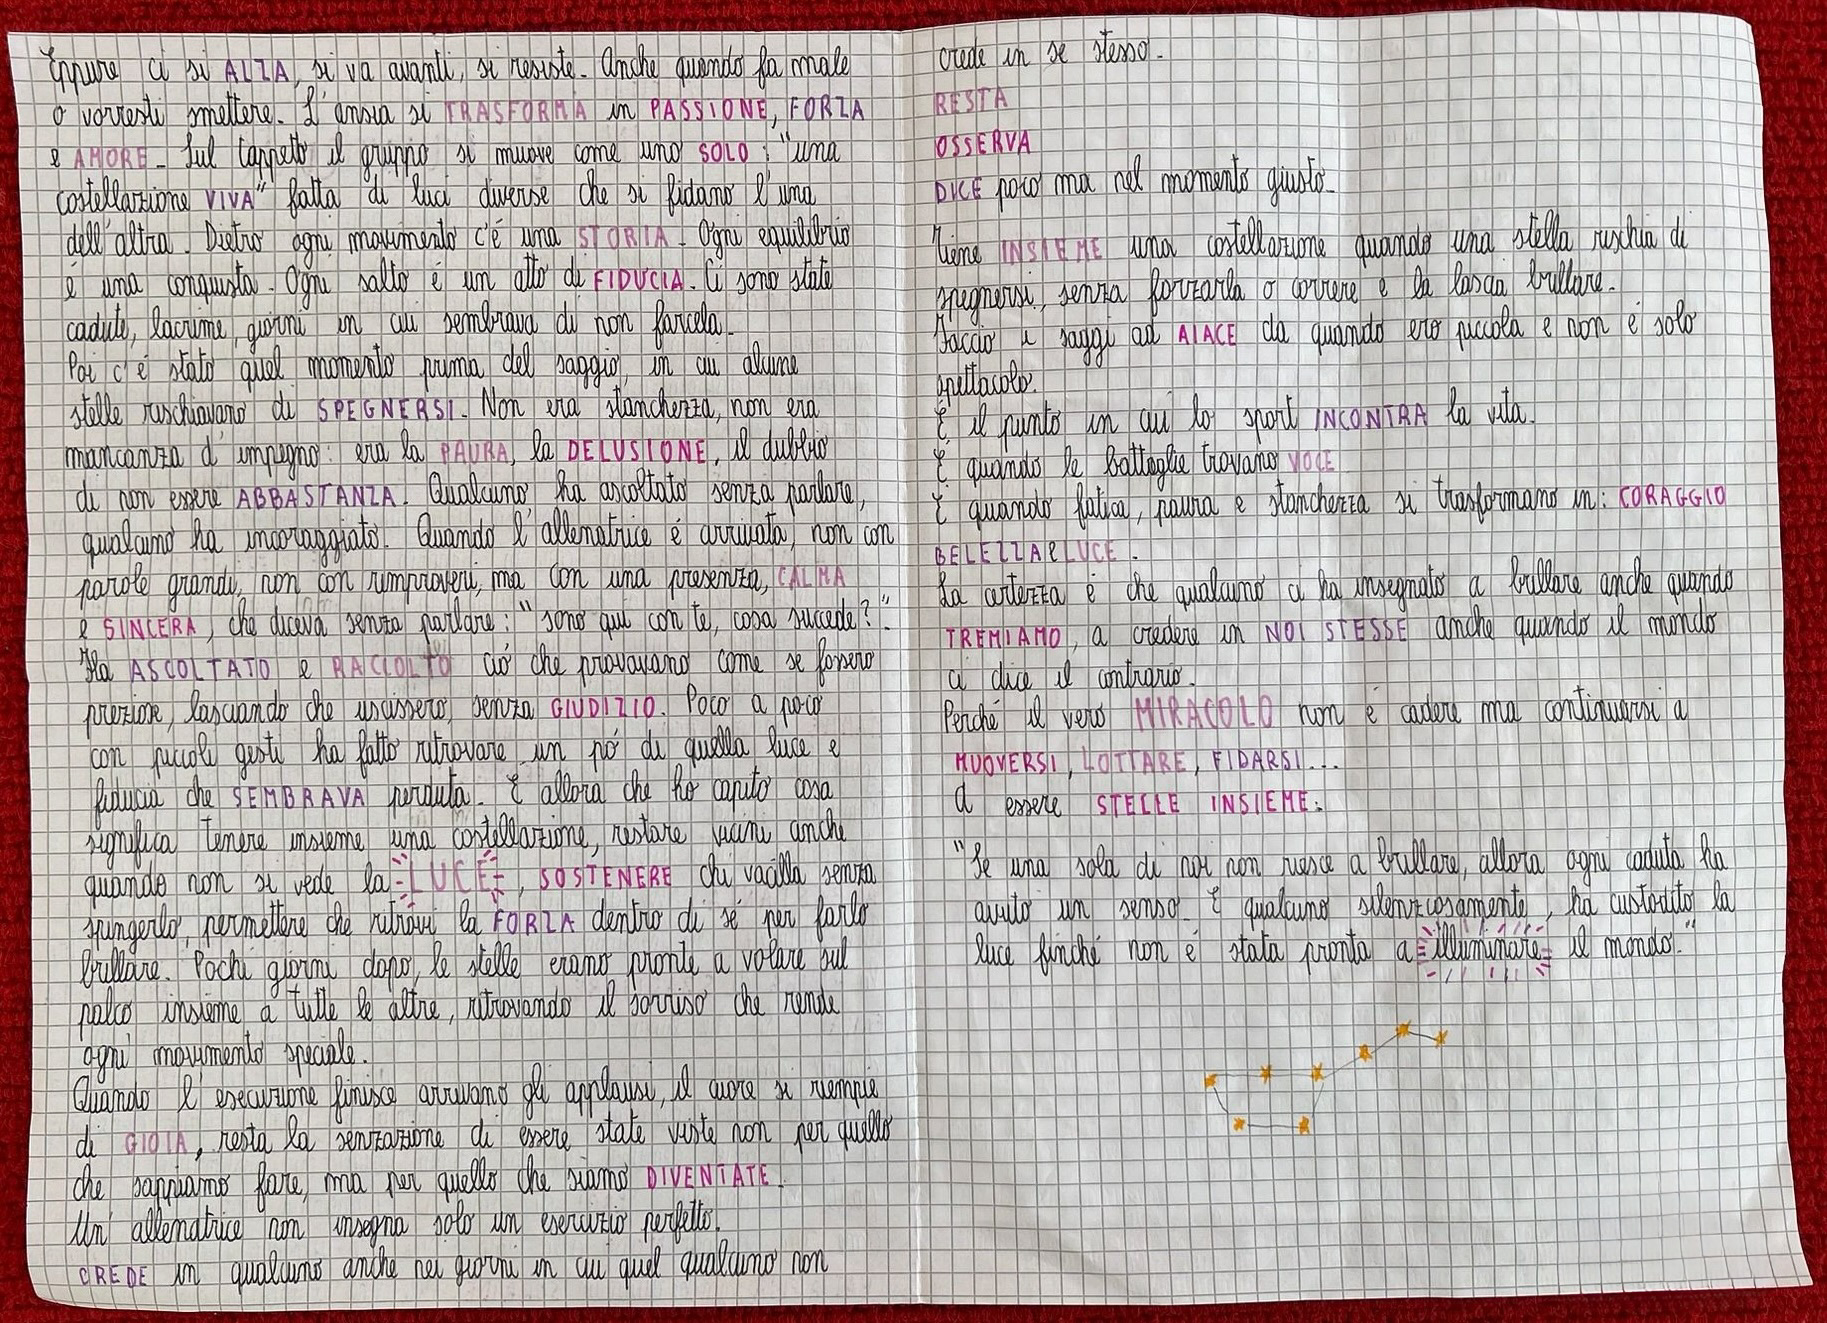 Eppure ci si ALZA, si va avanti, si resiste. Anche quando fa male
o vorresti smettere. L'ansia si TRASFORMA in PASSIONE, FORZA
e AMORE. Sul tappeto il gruppo si muove come uno SOLO: "una
costellazione VIVA" fatta di luci diverse che si fidano l'una
dell'altra. Dietro ogni movimento c'è una STORIA. Ogni equilibrio
è una conquista. Ogni salto è un atto di FIDUCIA. Ci sono state
cadute, lacrime, giorni in cui sembrava di non farcela.
Poi c'è stato quel momento prima del saggio, in cui alcune
stelle rischiavano di SPEGNERSI. Non era stanchezza, non era
mancanza d'impegno: era la PAURA, la DELUSIONE, il dubbio
di non essere ABBASTANZA. Qualcuno ha ascoltato senza parlare,
qualcuno ha incoraggiato. Quando l'allenatrice è arrivata, non con
parole grandi, non con rimproveri, ma con una presenza, CALMA
e SINCERA, che diceva senza parlare: "sono qui con te, cosa succede?".
Ha ASCOLTATO e RACCOLTO ciò che provavano come se fossero
preziose, lasciando che uscissero, senza GIUDIZIO. Poco a poco
con piccoli gesti ha fatto ritrovare un pò di quella luce e
fiducia che SEMBRAVA perduta. È allora che ho capito cosa
significa tenere insieme una costellazione, restare vicini anche
quando non si vede la LUCE, SOSTENERE chi vacilla senza
spingerlo, permettere che ritrovi la FORZA dentro di sé per farlo
brillare. Pochi giorni dopo, le stelle erano pronte a volare sul
palco insieme a tutte le altre, ritrovando il sorriso che rende
ogni movimento speciale.
Quando l'esecuzione finisce arrivano gli applausi, il cuore si riempie
di GIOIA, resta la senzazione di essere state viste non per quello
che sappiamo fare, ma per quello che siamo DIVENTATE.
Un'allenatrice non insegna solo un esercizio perfetto.
CREDE in qualcuno anche nei giorni in cui quel qualcuno non
crede in se stesso.
RESTA
OSSERVA
DICE poco ma nel momento giusto.
Tiene INSIEME una costellazione quando una stella rischia di
spegnersi, senza forzarla o correre e la lascia brillare.
Faccio i saggi ad AIACE da quando ero piccola e non è solo
spettacolo.
È il punto in cui lo sport INCONTRA la vita.
È quando le battaglie trovano VOCE
È quando fatica, paura e stanchezza si trasformano in: CORAGGIO
BELEZZA e LUCE.
La certezza è che qualcuno ci ha insegnato a brillare anche quando
TREMIAMO, a credere in NOI STESSE anche quando il mondo
ci dice il contrario.
Perché il vero MIRACOLO non è cadere ma continuarsi a
MUOVERSI, LOTTARE, FIDARSI...
a essere STELLE INSIEME.
"Se una sola di noi non riesce a brillare, allora ogni caduta ha
avuto un senso. E qualcuno silenziosamente, ha custodito la
luce finché non è stata pronta a illuminare il mondo."